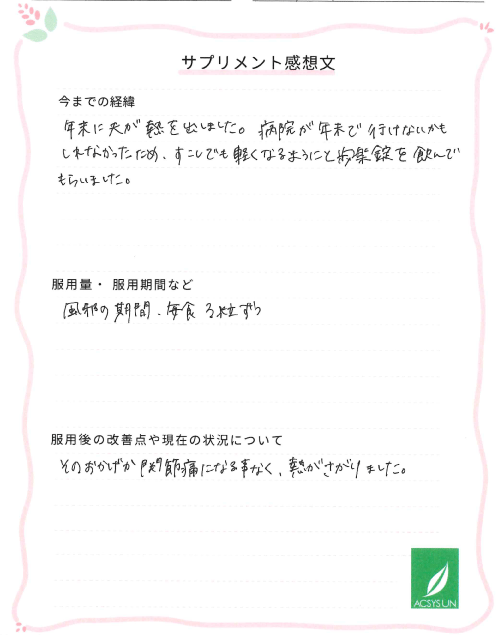 サプリメント感想文
今までの経緯
年末に夫が熱を出しました。病院が年末で行けないかも
しれなかったため、すこしでも軽くなるようにと 錠を飲んで
もらいました。
服用量・ 服用期間など
風邪の期間、毎食 粒ずつ
服用後の改善点や現在の状況について
そのおかげか関節痛になる事なく、熱がさがりました。
ACSYSUN